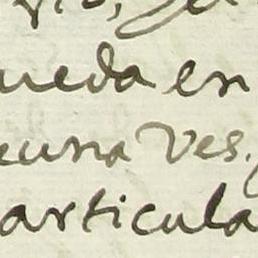 ueda en
euna Ves.
articula